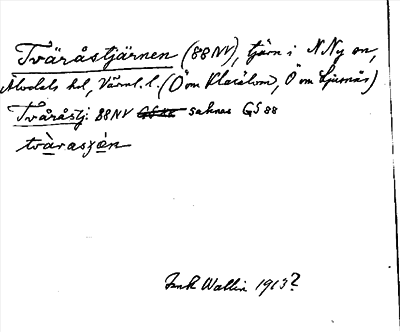 Tväråstjärnen (88NV), tjärn i N Ny sn,
Älvdals hd, Värml. l. (Ö om Klarälven, Ö om Ljusnäs)
Tväråstj. 88NV GS88 saknas GS88
tvàrasjǿn
Jank Wallin 1913?